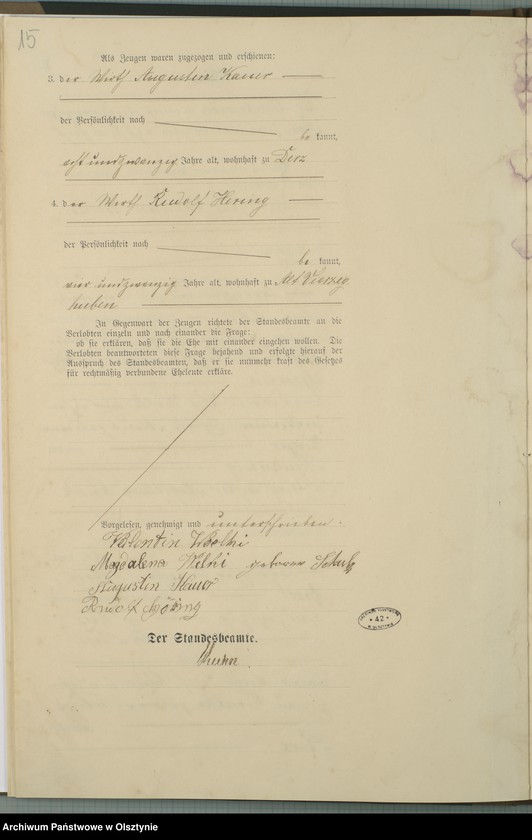 15
Als Zeugen waren zugezogen und erschienen:
3. der Wirth Augustin
der Persönlichkeit nach
be kannt,
acht undzwanzig Jahre alt, wohnhaft zu Derz
4. der Wirth Rudolf Hering
der Persönlichkeit nach
be kannt,
vier undzwanzig Jahre alt, wohnhaft zu Alt Vierzig
huben
In Gegenwart der Zeugen richtete der Standesbeamte an die
Verlobten einzeln und nach einander die Frage:
ob sie erklären, daß sie die Ehe mit einander eingehen wollen. Die
Verlobten beantworteten diese Frage bejahend und erfolgte hierauf der
Ausspruch des Standesbeamten, daß er sie nunmehr kraft des Gesetzes
für rechtmäßig verbundene Eheleute erkläre.
Vorgelesen, genehmigt und unterschrieben.
Valentin
Magdalena geborene Schulz
Augustin
Rudolf
Der Standesbeamte.
42
Archiwum Państwowe w Olsztynie